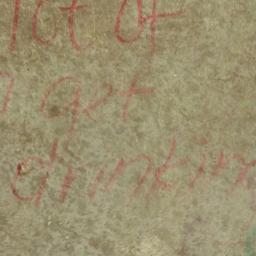 lot of
get
drinkin